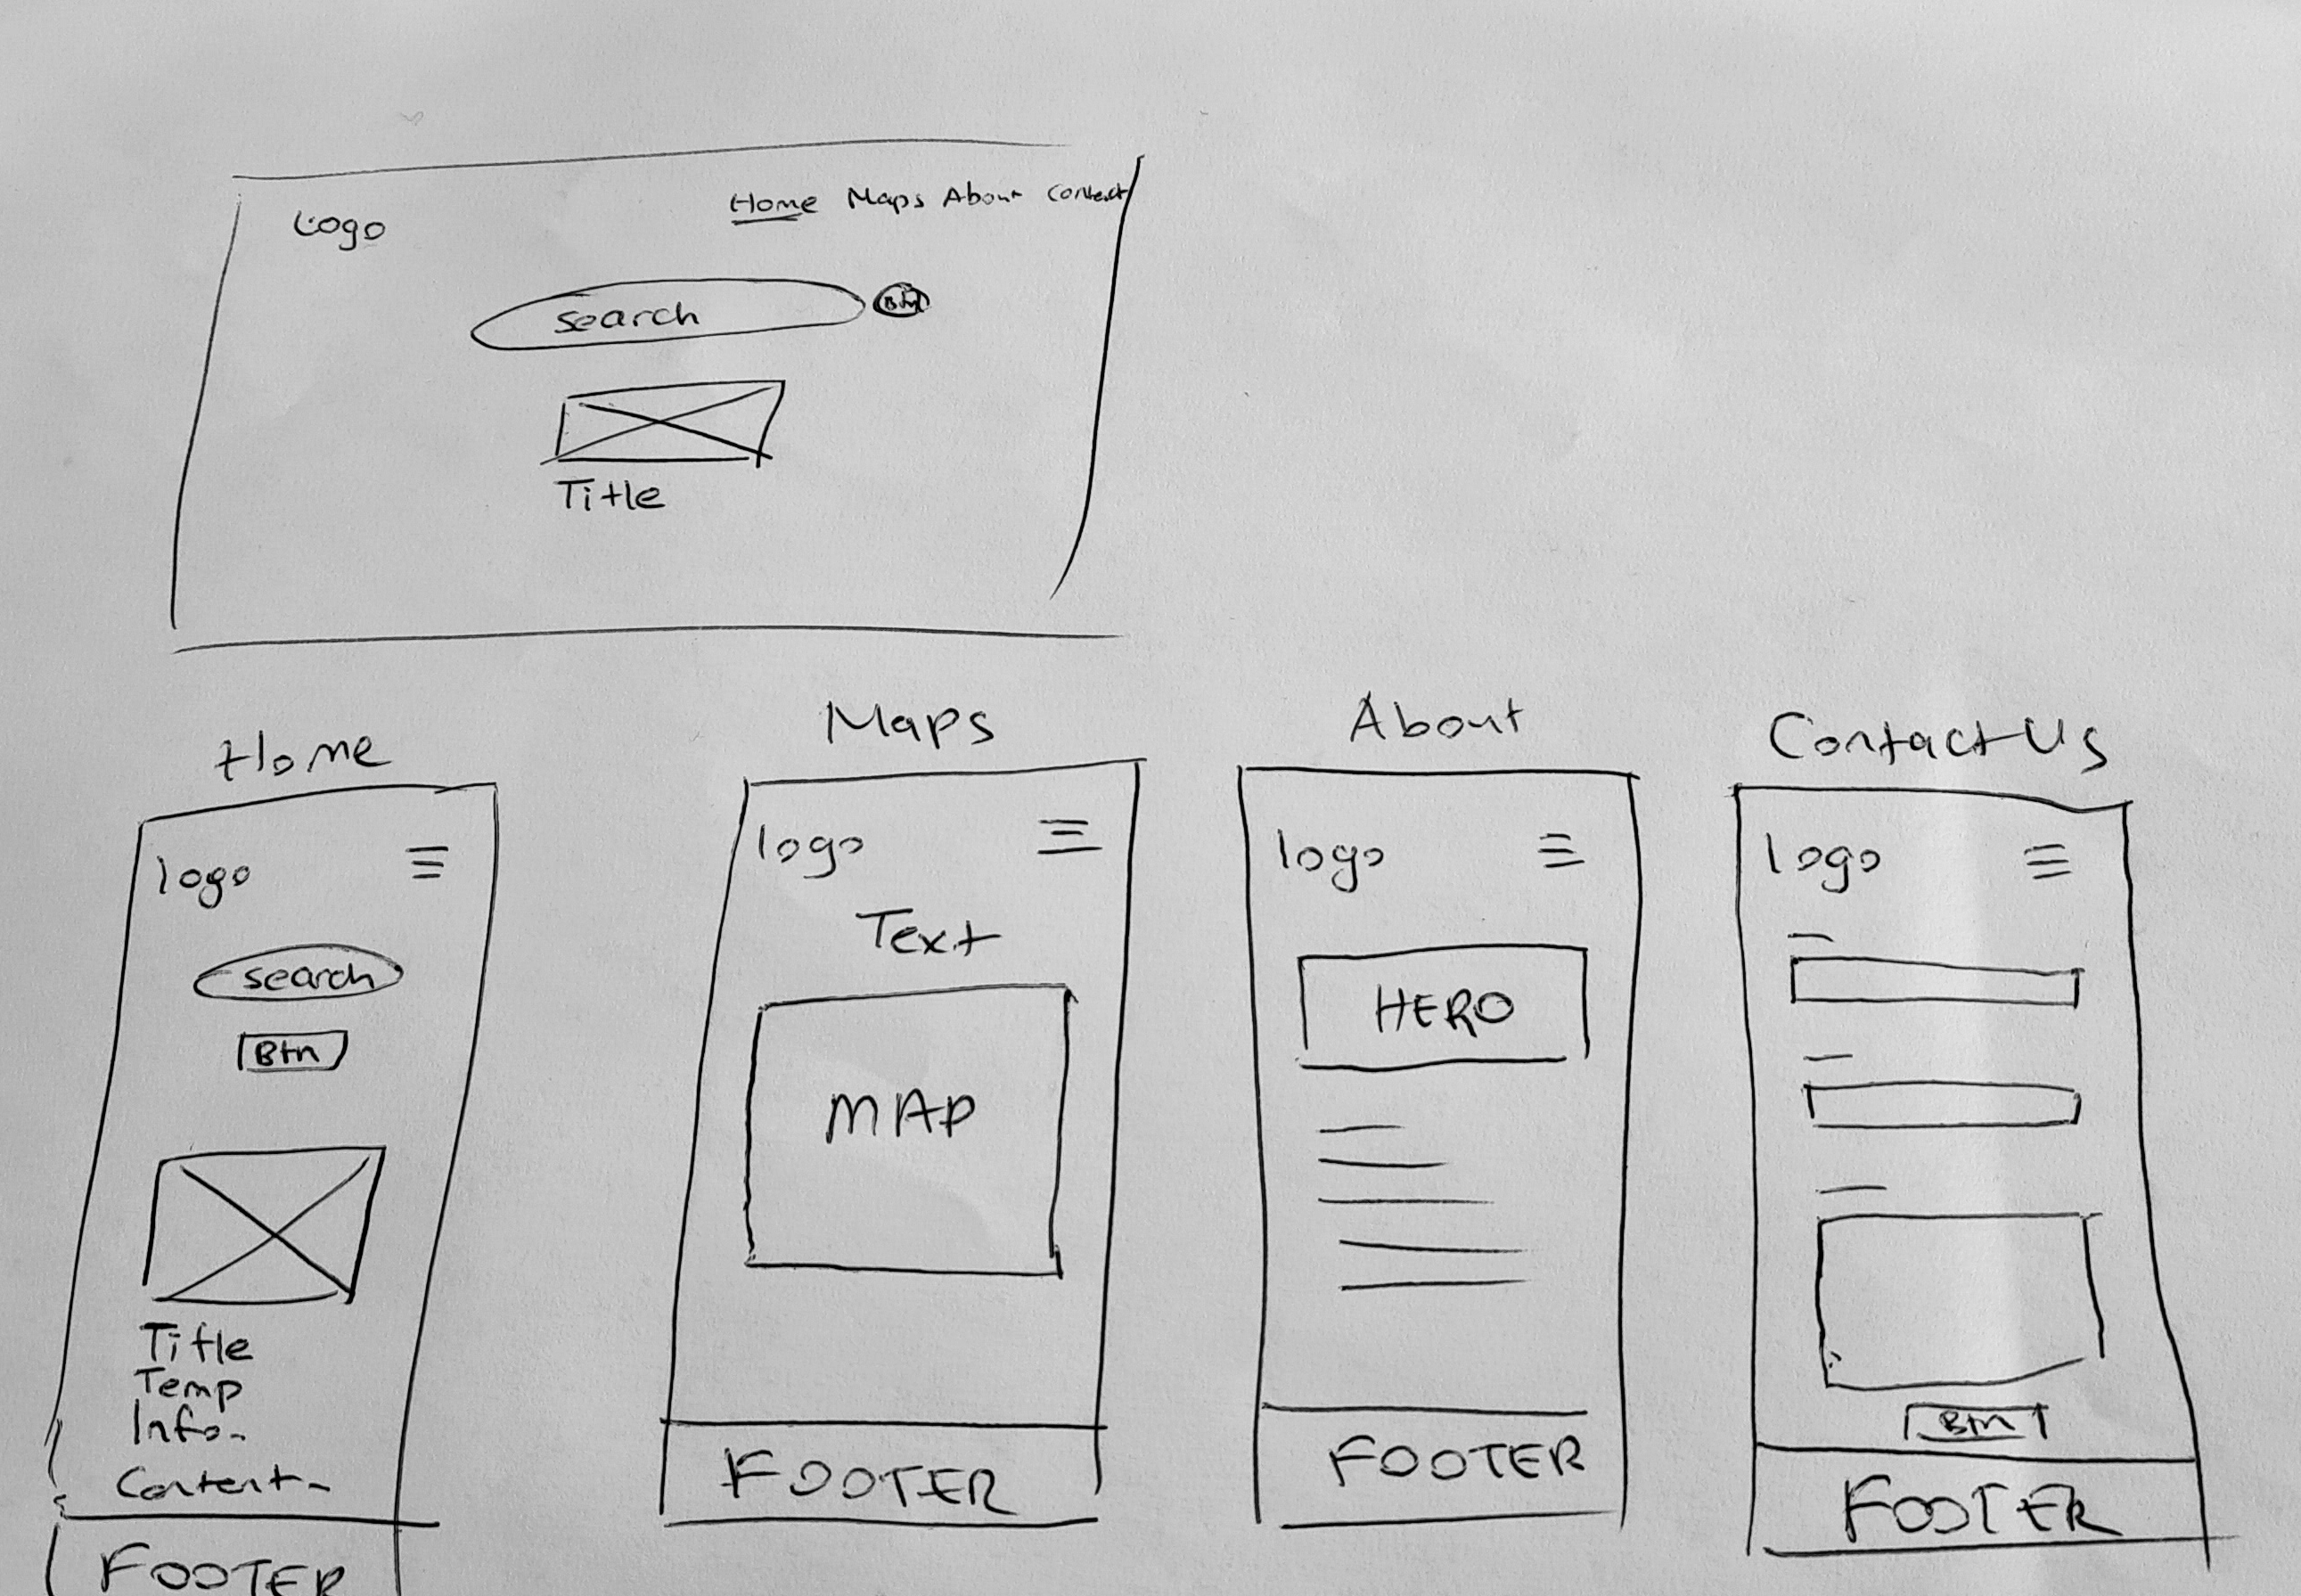 Logo
Home Maps About Contact
search
Btn
Title
Home
logo
search
Btn
Title
Temp
Info-
Content-
FOOTER
Maps
logo
Text
MAP
FOOTER
About
logo
HERO
FOOTER
Contact Us
logo
Btn
FOOTER